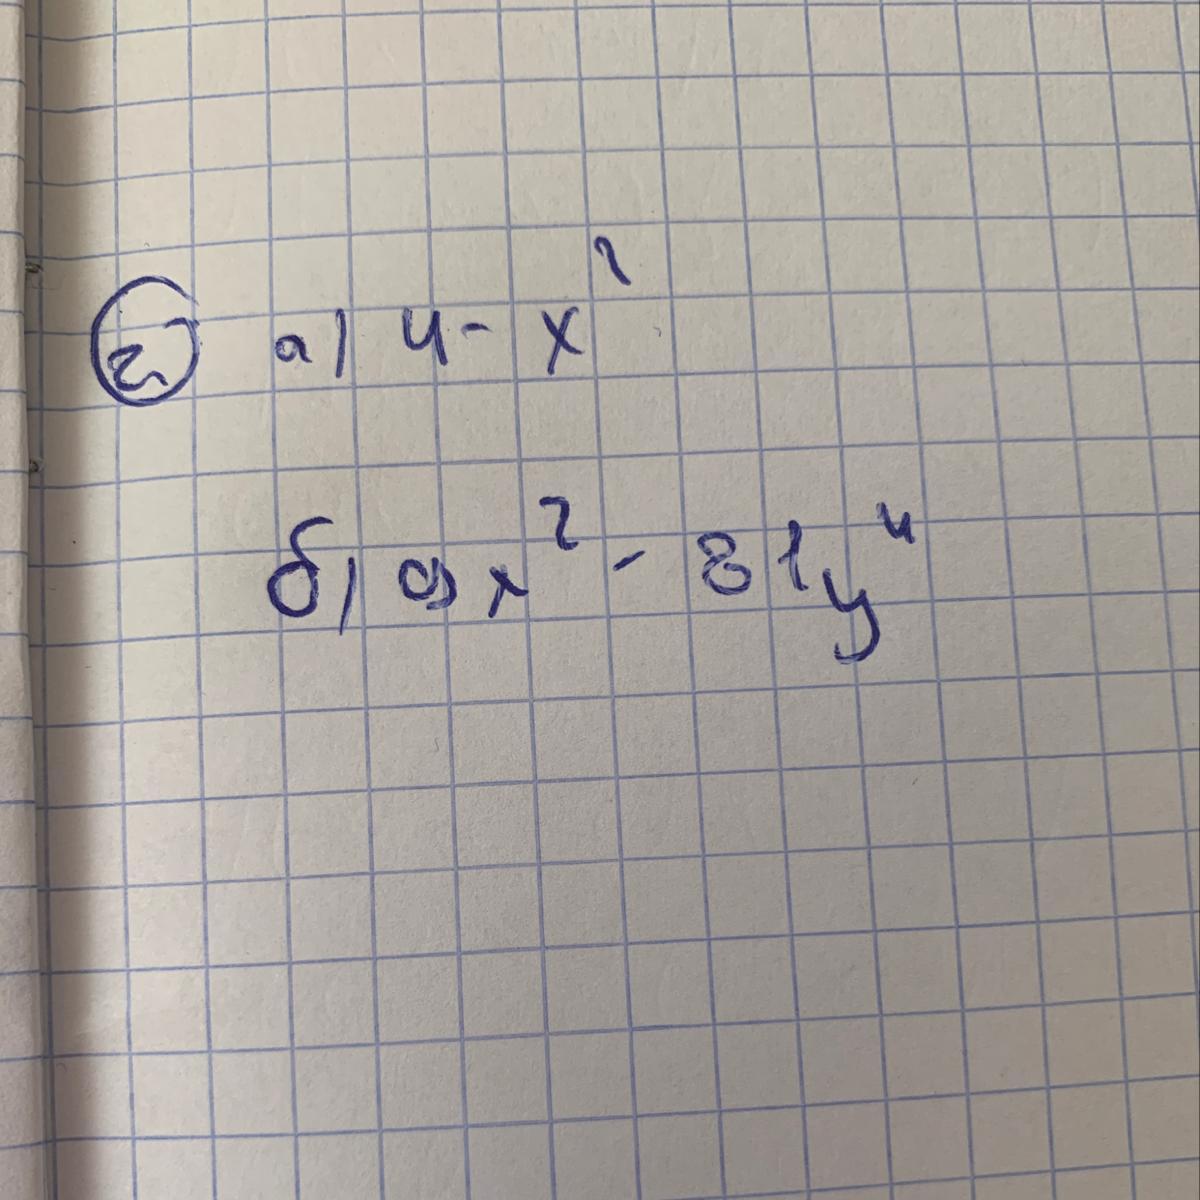 2 а) 4 - x²
б) 9x² - 81y⁴